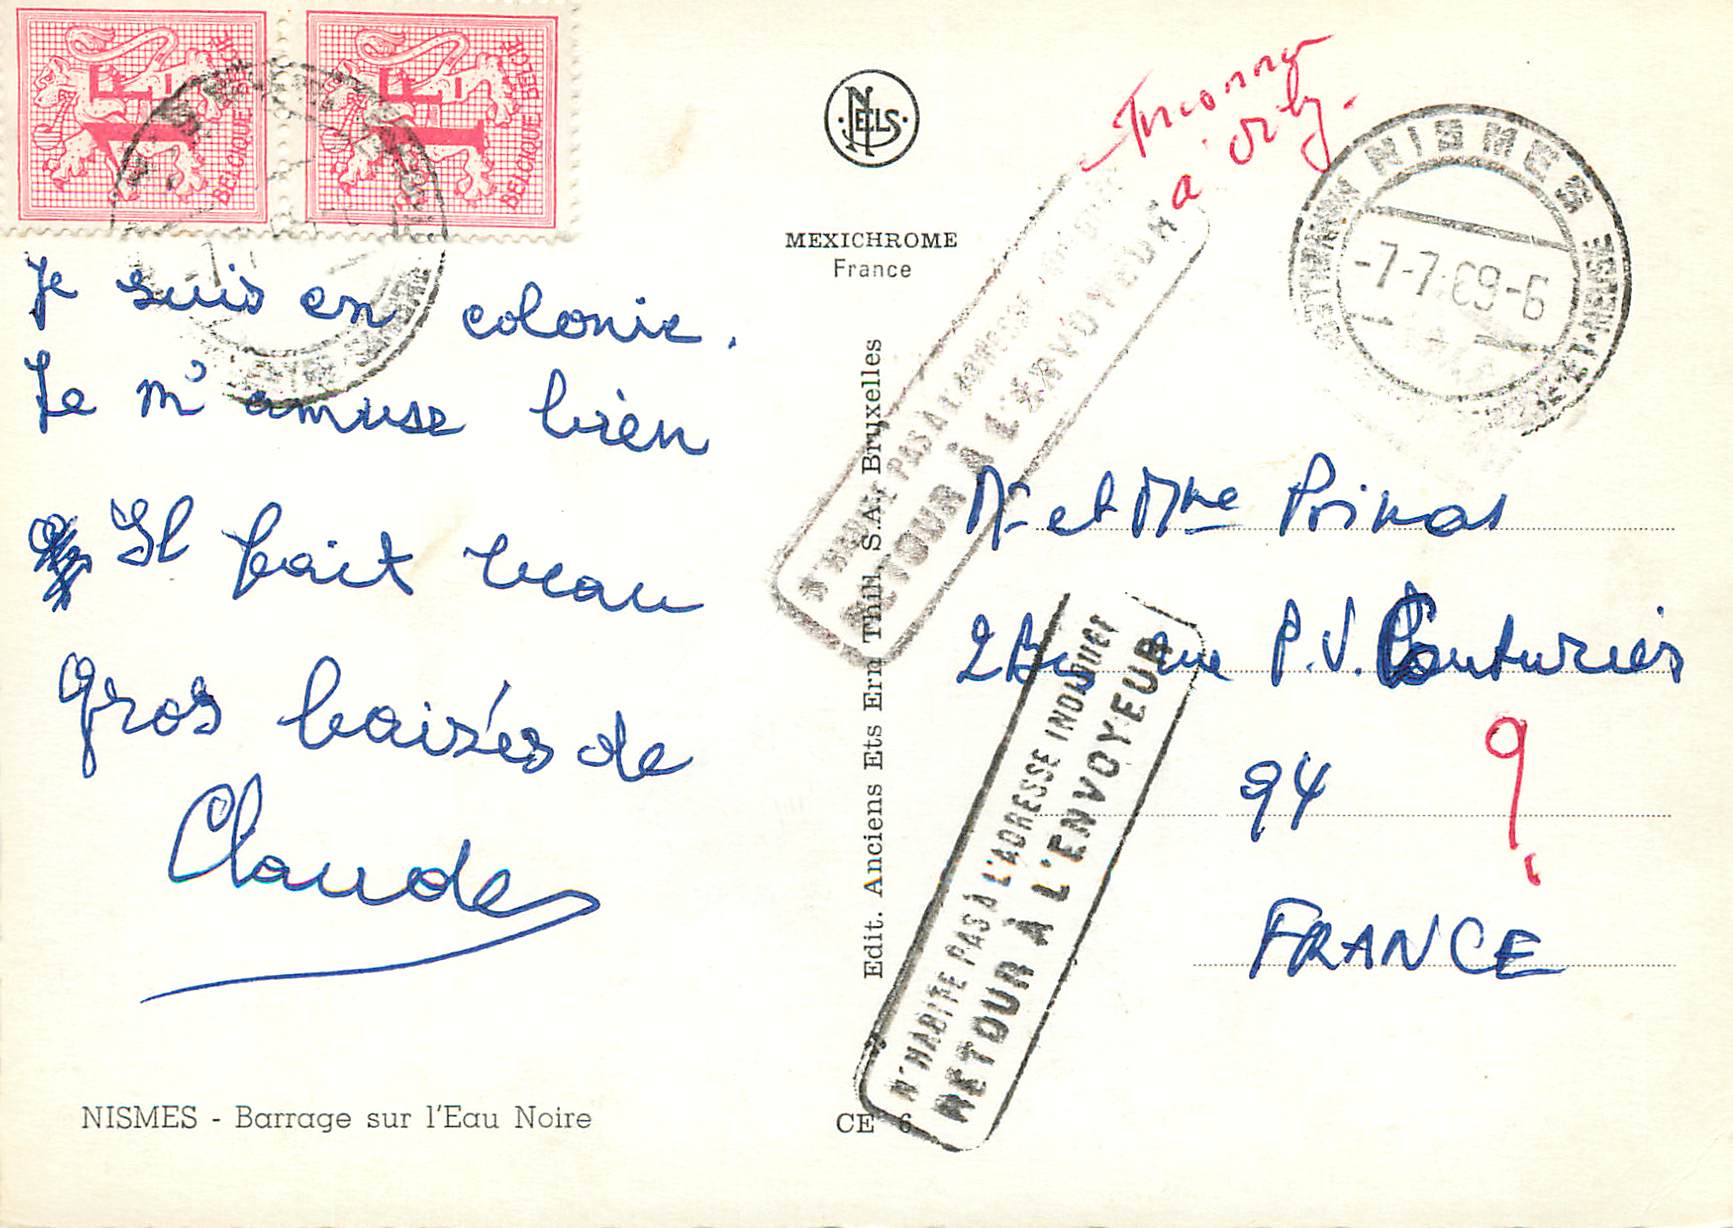 1F
BELGIQUE-BELGIË
1F
BELGIQUE-BELGIË
Je suis en colonie.
Je m'amuse bien
Il fait beau
gros baisés de
Claude
NISMES - Barrage sur l'Eau Noire
NELS
MEXICHROME
France
Edit. Anciens Ets Ern. Thill, S.A., Bruxelles
CE 6
Inconnu
à Orly.
NISMES
-7-7-69-6
N'HABITE PAS À L'ADRESSE INDIQUÉE
RETOUR À L'ENVOYEUR
N'HABITE PAS À L'ADRESSE INDIQUÉE
RETOUR À L'ENVOYEUR
Mr et Mme
2 bis rue P.V. Couturier
94
?
FRANCE